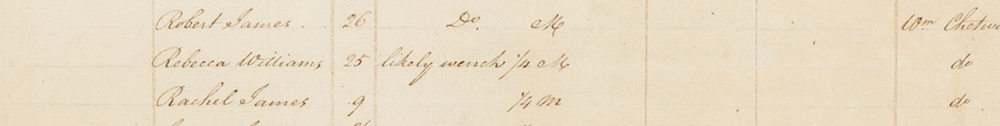 Robert James. 26 Do. M Wm
Rebecca Williams 25 likely wench 1/4 M do
Rachel James 9 1/4 M do.